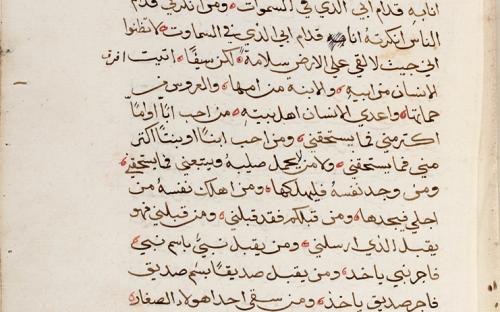 انا به قدام ابي الذي في السموات ومن انكرني قدام
الناس انكرته انا قدام ابي الذي في السماوت لا تظنوا
اني جيت لالقي على الارض سلامة لكن سيفا اتيت افرق
الانسان من ابيه والابنه من امها والعروس من
حماتها واعدي الانسان اهل بيته من احب ابًا او امًا
اكتر مني فما يستحقني ومن احب ابنًا او بنتًا اكتر
مني فما يستحقني ولا من لا يحمل صليبه ويتبعني فما يستحقني
ومن وجد نفسه فليهلكها ومن اهلك نفسه من
اجلي فيجدها ومن قبلكم فقد قبلني ومن قبلني فهو
يقبل الذي ارسلني ومن يقبل نبيً باسم نبي
فاجر نبي ياخد ومن يقبل صديقًا بسم صديق
فاجر صديق ياخذ ومن سقى احدا هولاء الصغار